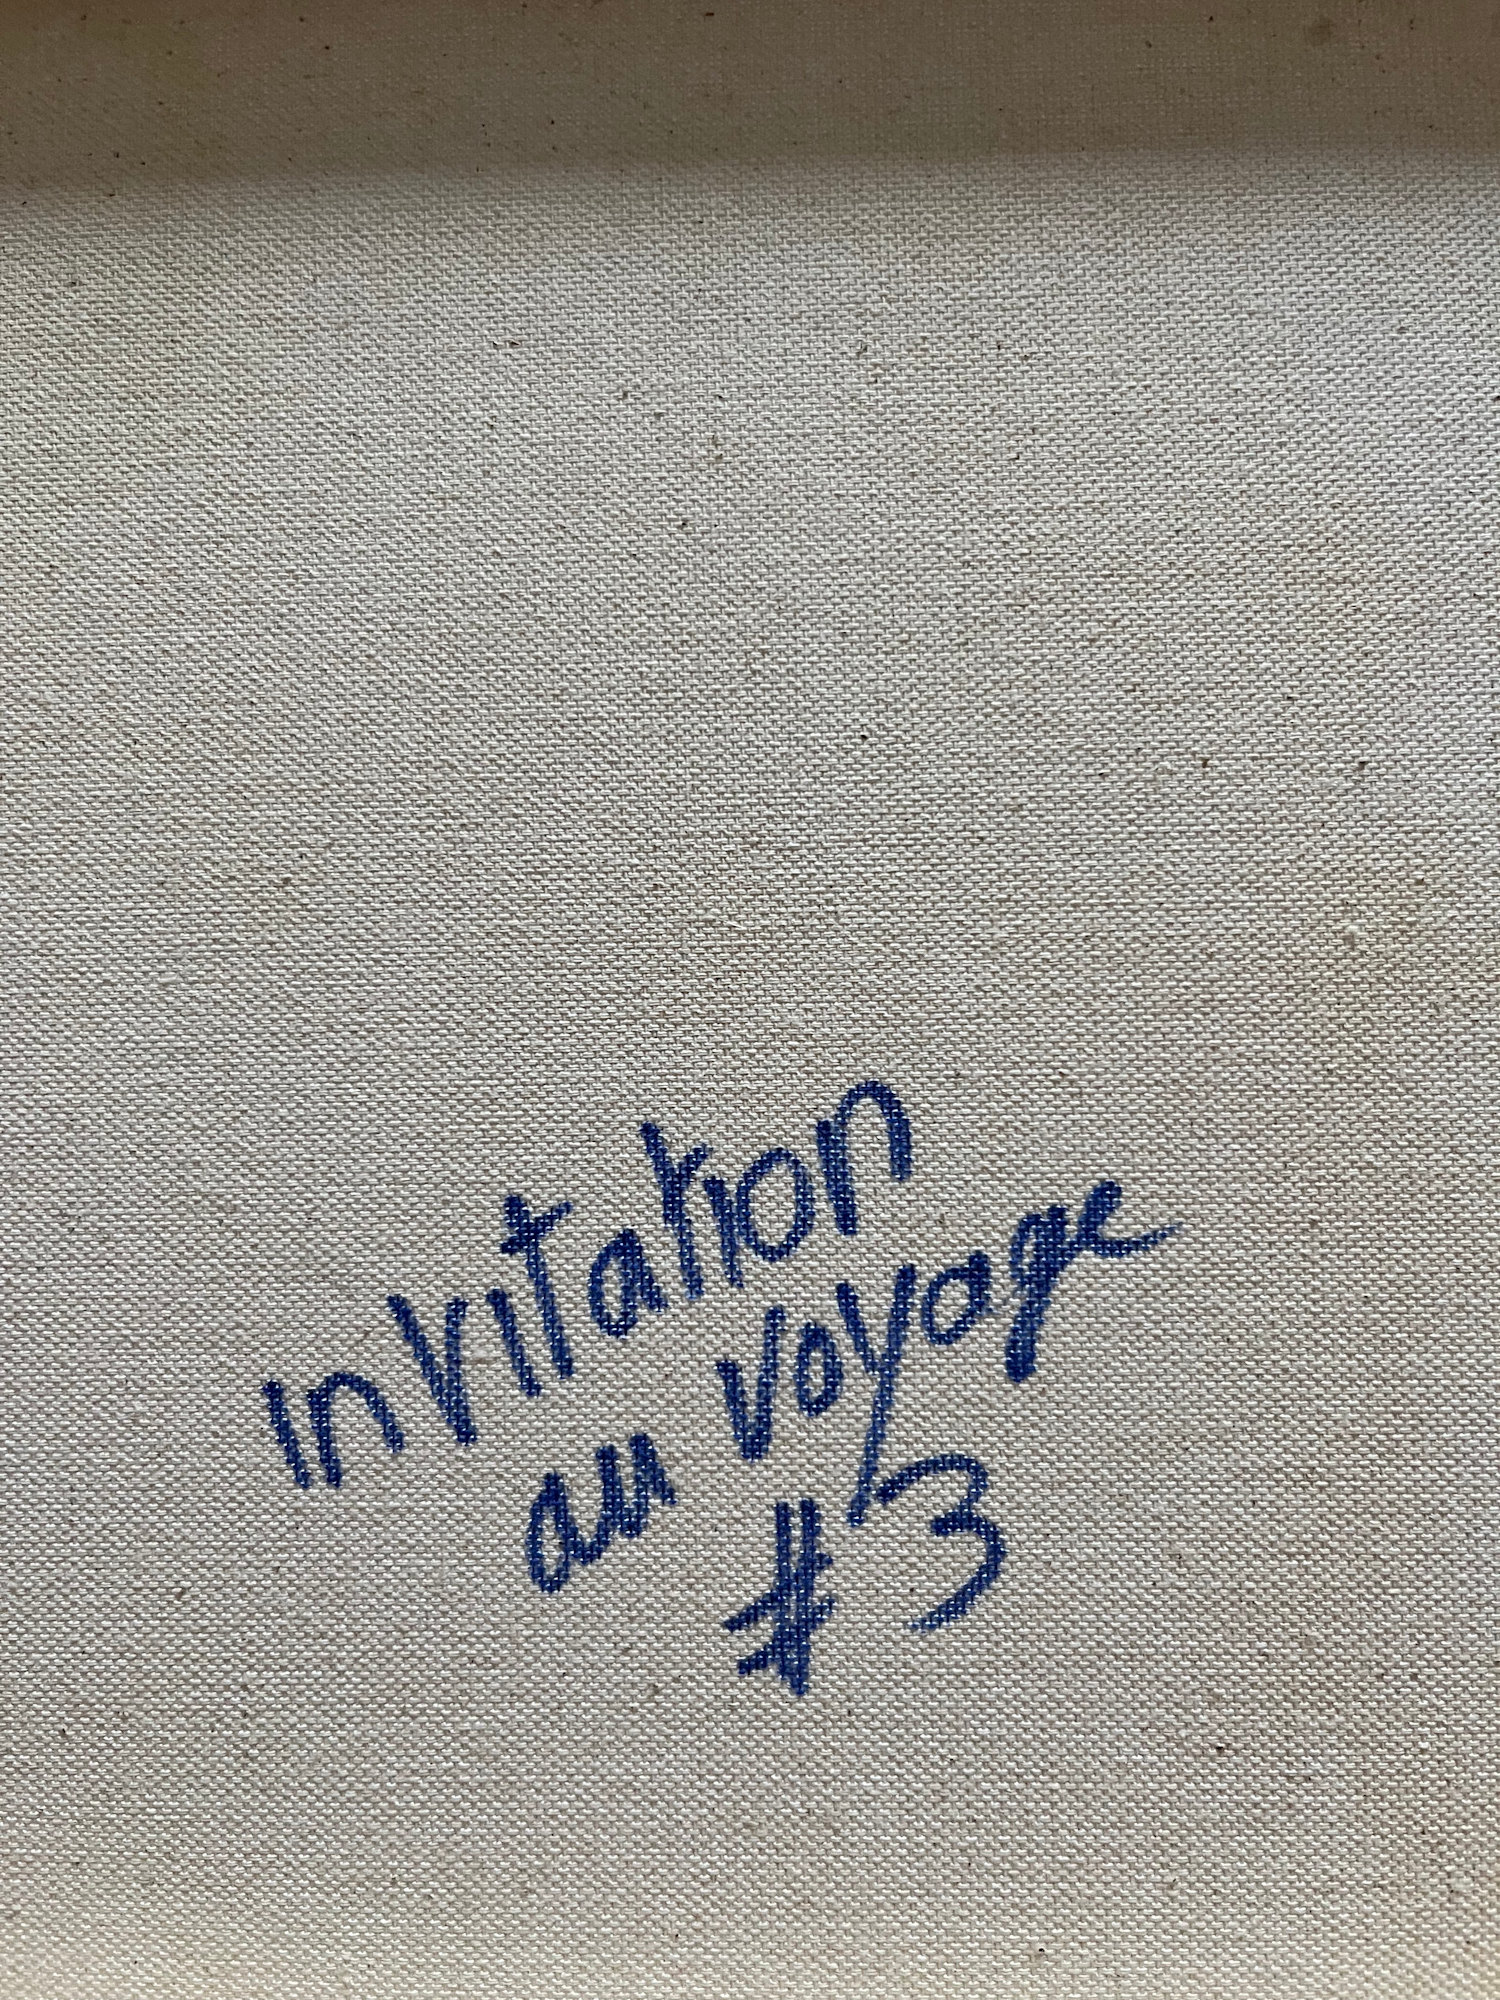 Invitation
au voyage
#3